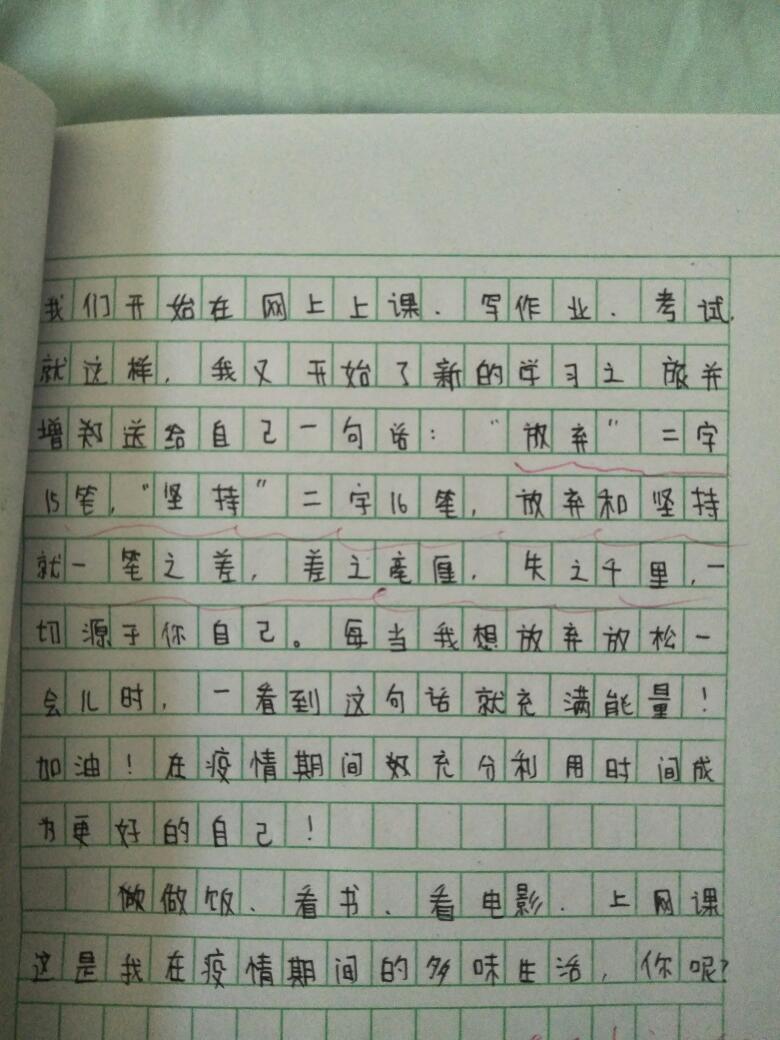 我们开始在网上上课、写作业、考试,
就这样,我又开始了新的学习之旅并
增郑送给自己一句话:“放弃”二字
15笔,“坚持”二字16笔,放弃和坚持
就一笔之差,差之毫厘,失之千里,一
切源于你自己。每当我想放弃放松一
会儿时,一看到这句话就充满能量!
加油!在疫情期间奴充分利用时间成
为更好的自己!
做做饭、看书、看电影、上网课
这是我在疫情期间的多味生活,你呢?